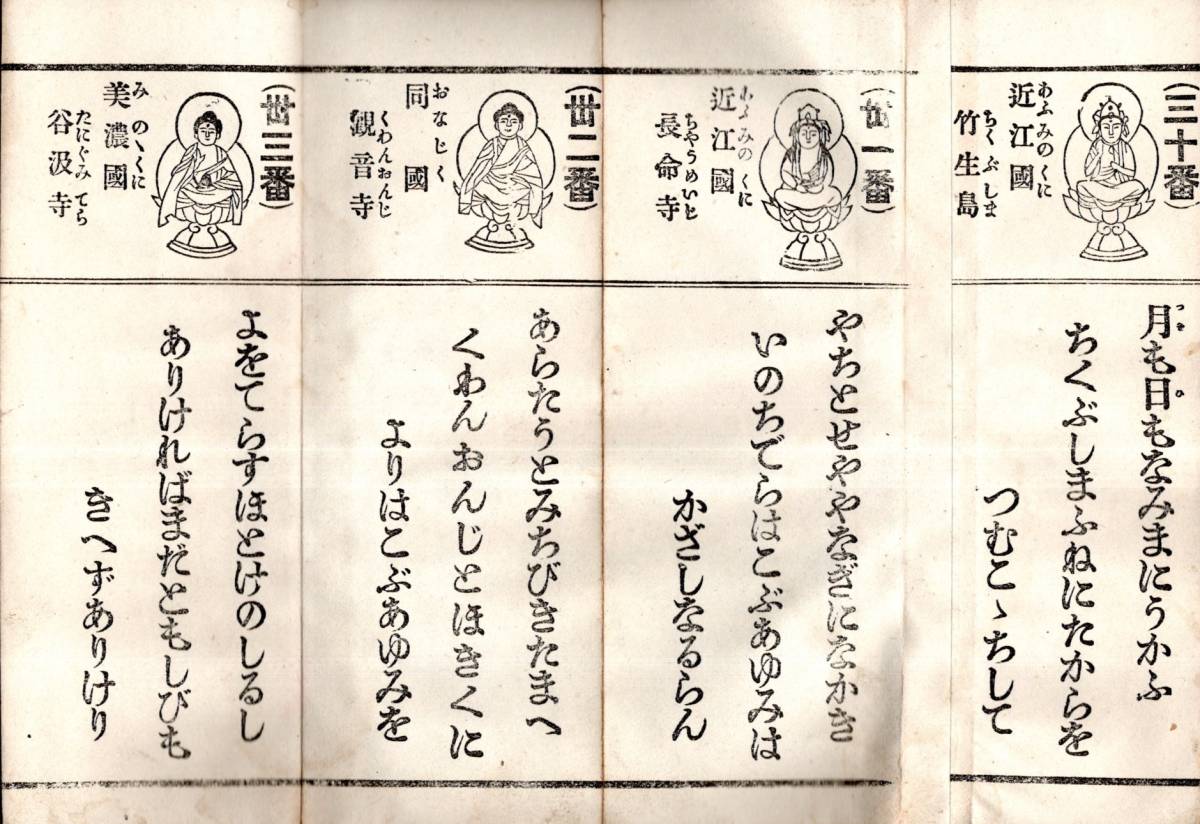 (三十番)
近江國
あふみのくに
竹生島
ちくぶしま
月も日もなみまにうかふ
つき ひ
ちくぶしまふねにたからを
つむこゝちして
(丗一番)
近江國
あふみのくに
長命寺
ちやうめいじ
やちとせややなぎになかき
いのちでらはこぶあゆみは
かざしなるらん
(丗二番)
同國
おなじく
觀音寺
くわんおんじ
あらたうとみちびきたまへ
くわんおんじとほきくに
よりはこぶあゆみを
(丗三番)
美濃國
みのゝくに
谷汲寺
たにぐみてら
よをてらすほとけのしるし
ありければまだともしびも
きへずありけり